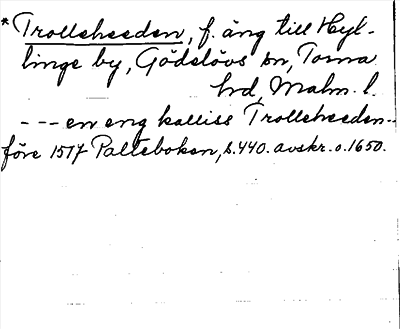 * Trolleheeden, f. äng till Hyl-
linge by, Gödelövs sn, Torna
hrd, Malm. l.
--- en eng kalliss Trolleheeden --
före 1517 Palteboken, s. 440. avskr. o. 1650.